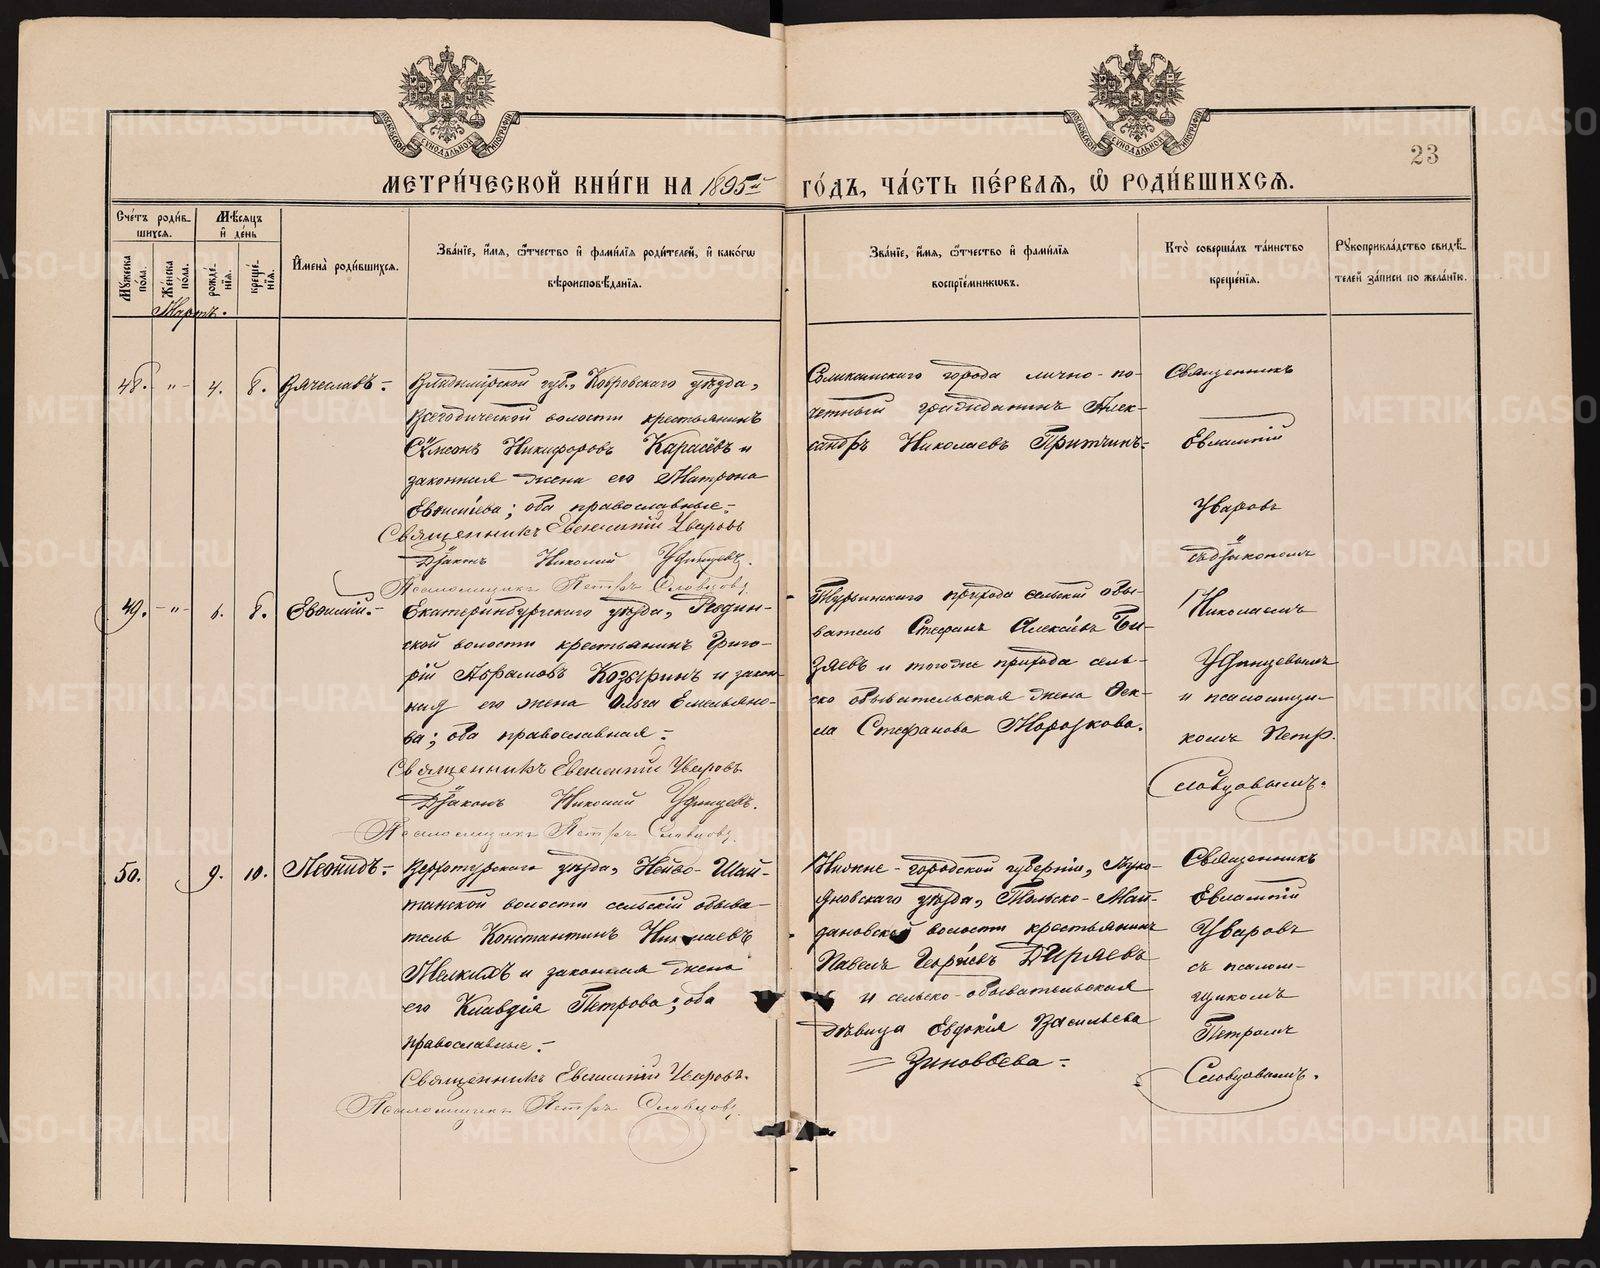 МОСКОВСКОЙ СѴНОДАЛЬНОЙ ТИПОГРАФІИ
МОСКОВСКОЙ СѴНОДАЛЬНОЙ ТИПОГРАФІИ
23
МЕТРИ́ЧЕСКОЙ КНИ́ГИ НА 1895й ГО́ДЪ, ЧА́СТЬ ПЕ́РВАЯ, Ѡ҆ РОДИ́ВШИХСЯ.
Сче́тъ роди́в-
шихся.
Мꙋ́жеска по́ла.
Же́нска по́ла.
Мѣ́сяцъ
и҆ де́нь
рожде́-
нія.
креще́-
нія.
И҆мена̀ роди́вшихся.
Зва́ніе, и҆́мя, ѻ҆́тчество и҆ фами́лія роди́телей, и҆ како́гѡ
вѣроисповѣ́данія.
Зва́ніе, и҆́мя, ѻ҆́тчество и҆ фами́лія
воспріе́мникѡвъ.
Кто̀ соверша́лъ та́инство
креще́нія.
Рꙋкоприкла́дство свидѣ́-
телей за́писи по жела́нію.
Мартъ.
48. - " - 4. 8. Вячеславъ. -
Владимірской губ., Ковровскаго уѣзда,
Всегодической волости крестьянинъ
Сѵмеонъ Никифоровъ Карасёвъ и
законная жена его Матрона
; оба православные. -
Священникъ Евлампій Уваровъ
Діаконъ Николай Удинцевъ.
Псаломщикъ Петръ Словцовъ.
Соликамскаго города лично-по-
четный гражданинъ Алек-
сандръ Николаевъ Притчинъ. -
Священникъ
Евлампій
Уваровъ
съ діакономъ
Николаемъ
Удинцевымъ
и псаломщи-
комъ Петр.
Словцовымъ.
49. - " - 8. Евѳимій. -
Екатеринбургскаго уѣзда, Ревдин-
ской волости крестьянинъ Григо-
рій Абрамовъ Козыринъ и закон-
ная его жена Ольга Емельяно-
ва; оба православная. -
Священникъ Евлампій Уваровъ.
Діаконъ Николай Удинцевъ.
Псаломщикъ Петръ Словцовъ.
Турьинскаго природа сельскій обы-
ватель Стефанъ Алексѣевъ Би-
зяевъ и тогоже природа сель-
ско обывательская жена Фек-
ла Стефанова Морозкова.
50. 9. 10. Леонидъ. -
Верхотурскаго уѣзда, Нейво-Шай-
танской волости сельскій обыва-
тель Константинъ Николаевъ
Мелкихъ и законная жена
его Клавдія Петрова; оба
православные. -
Священникъ Евлампій Уваровъ.
Псаломщикъ Петръ Словцовъ.
Нижне-городской губерніи, Луко-
яновскаго уѣзда, Тольско-Май-
дановской волости крестьянинъ
Павелъ Дираевъ
и сельско-обывательская
дѣвица Евдокія Васильева
= Зиновьева. -
Священникъ
Евлампій
Уваровъ
съ псалом-
щикомъ
Петромъ
Словцовымъ.